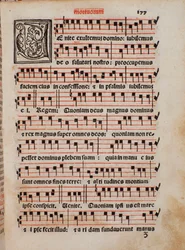 Enite exultemus domino: iubilemus
deo salutari nostro: preoccupemus
faciem eius in confessione: et in psalmis iubilemus
ei. Regem. Quoniam deus magnus dominus
et rex magnus super omnes deos: quoniam non re-
pellet dominus plebem suam: quia in manu eius
sunt omnes fines terre: et altitudines montium
ipse conspicit. Venite. Quoniam ipsius est mare
et ipse fecit illud: et aridam fundaverunt manus